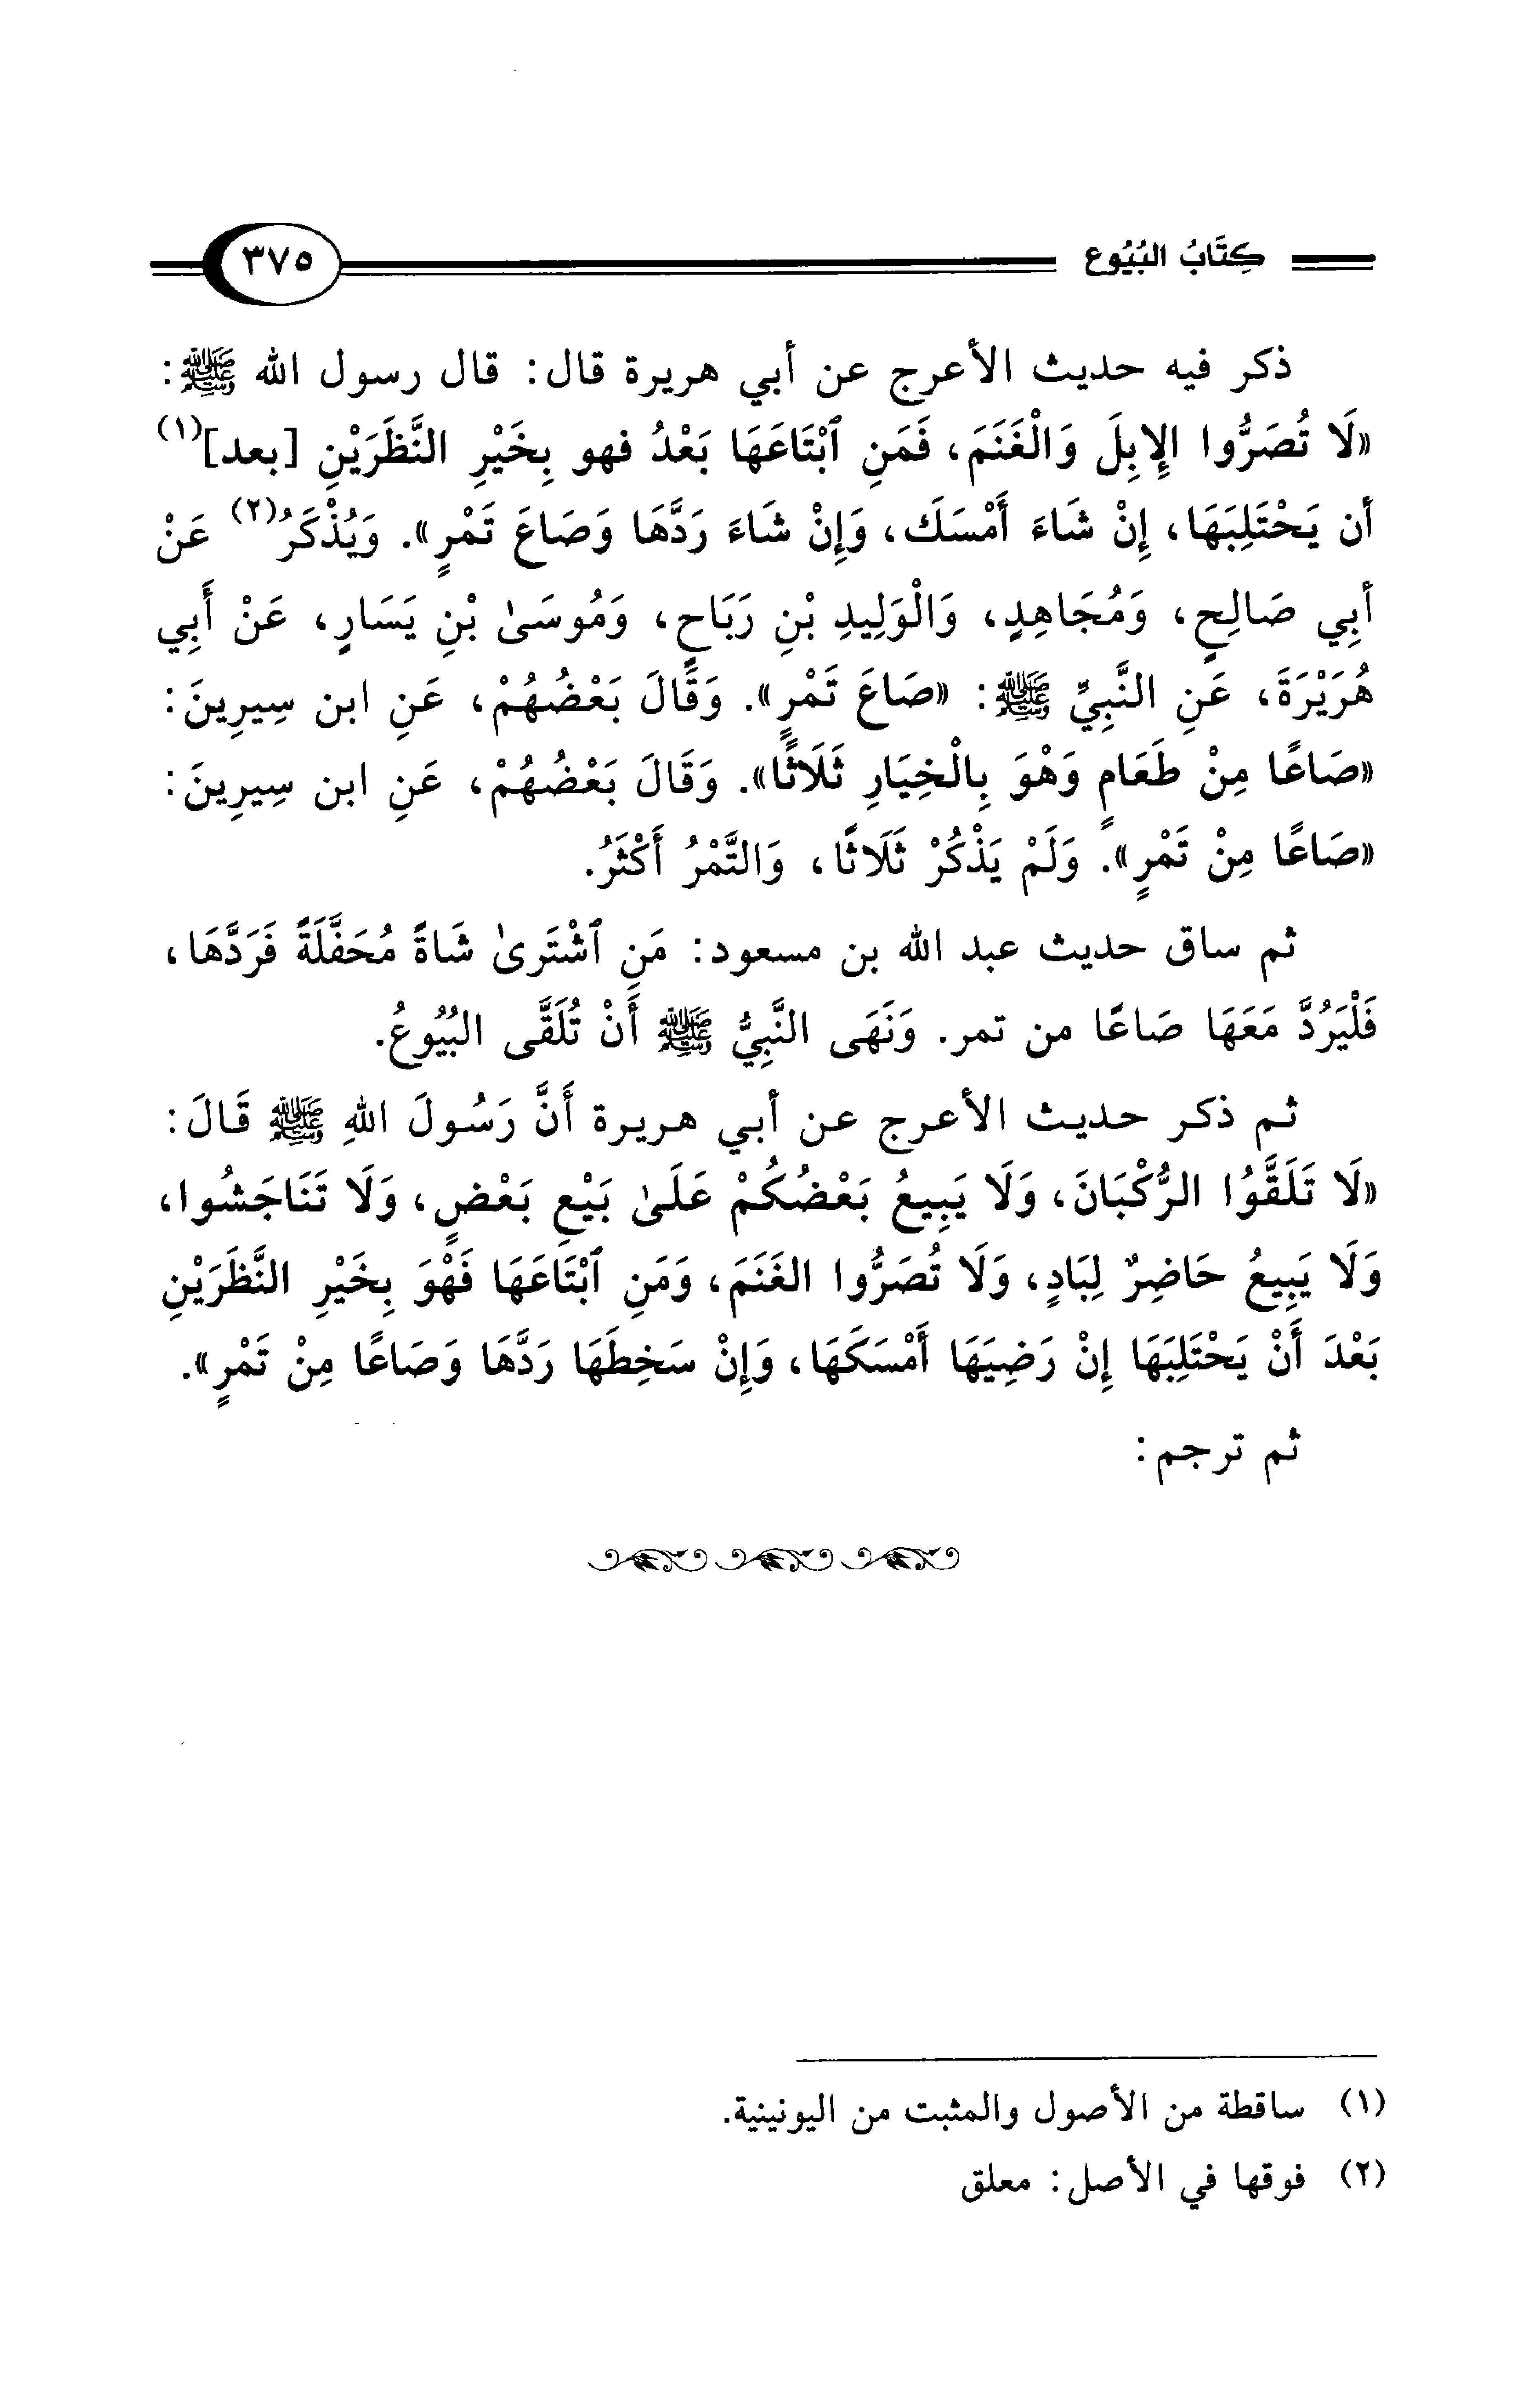 كِتَابُ البُيُوع ٣٧٥
ذكر فيه حديث الأعرج عن أبي هريرة قال: قال رسول الله ﷺ:
«لَا تُصَرُّوا الإِبِلَ وَالْغَنَمَ، فَمَنِ ٱبْتَاعَهَا بَعْدُ فهو بِخَيْرِ النَّظَرَيْنِ [بعد](١)
أن يَحْتَلِبَهَا، إِنْ شَاءَ أَمْسَكَ، وَإِنْ شَاءَ رَدَّهَا وَصَاعَ تَمْرٍ». وَيُذْكَرُ(٢) عَنْ
أَبِي صَالِحٍ، وَمُجَاهِدٍ، وَالْوَلِيدِ بْنِ رَبَاحٍ، وَمُوسَىٰ بْنِ يَسَارٍ، عَنْ أَبِي
هُرَيْرَةَ، عَنِ النَّبِيِّ ﷺ: «صَاعَ تَمْرٍ». وَقَالَ بَعْضُهُمْ، عَنِ ابن سِيرِينَ:
«صَاعًا مِنْ طَعَامٍ وَهْوَ بِالْخِيَارِ ثَلَاثًا». وَقَالَ بَعْضُهُمْ، عَنِ ابن سِيرِينَ:
«صَاعًا مِنْ تَمْرٍ». وَلَمْ يَذْكُرْ ثَلَاثًا، وَالتَّمْرُ أَكْثَرُ.
ثم ساق حديث عبد الله بن مسعود: مَنِ ٱشْتَرىٰ شَاةً مُحَفَّلَةً فَرَدَّهَا،
فَلْيَرُدَّ مَعَهَا صَاعًا من تمر. وَنَهَى النَّبِيُّ ﷺ أَنْ تُلَقَّى البُيُوعُ.
ثم ذكر حديث الأعرج عن أبي هريرة أَنَّ رَسُولَ اللهِ ﷺ قَالَ:
«لَا تَلَقَّوُا الرُّكْبَانَ، وَلَا يَبِيعُ بَعْضُكُمْ عَلَىٰ بَيْعِ بَعْضٍ، وَلَا تَنَاجَشُوا،
وَلَا يَبِيعُ حَاضِرٌ لِبَادٍ، وَلَا تُصَرُّوا الغَنَمَ، وَمَنِ ٱبْتَاعَهَا فَهْوَ بِخَيْرِ النَّظَرَيْنِ
بَعْدَ أَنْ يَحْتَلِبَهَا إِنْ رَضِيَهَا أَمْسَكَهَا، وَإِنْ سَخِطَهَا رَدَّهَا وَصَاعًا مِنْ تَمْرٍ».
ثم ترجم:
(١) ساقطة من الأصول والمثبت من اليونينية.
(٢) فوقها في الأصل: معلق